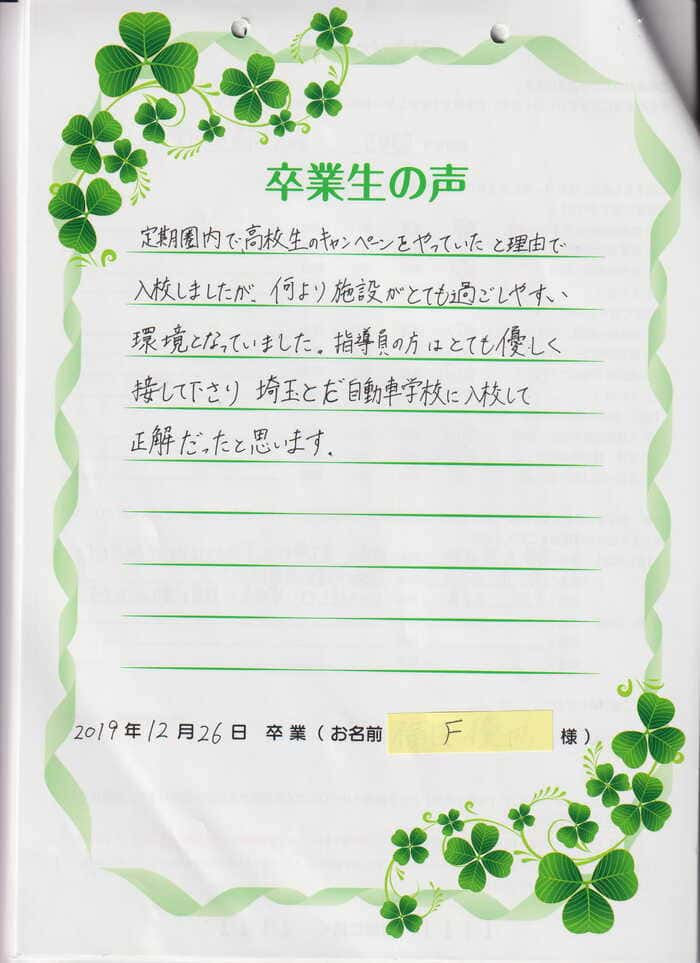 卒業生の声
定期圏内で、高校生のキャンペーンをやっていたと理由で
入校しましたが、何より施設がとても過ごしやすい
環境となっていました。指導員の方はとても優しく
接して下さり 埼玉とだ自動車学校に入校して
正解だったと思います。
2019年12月26日 卒業(お名前 F 様)